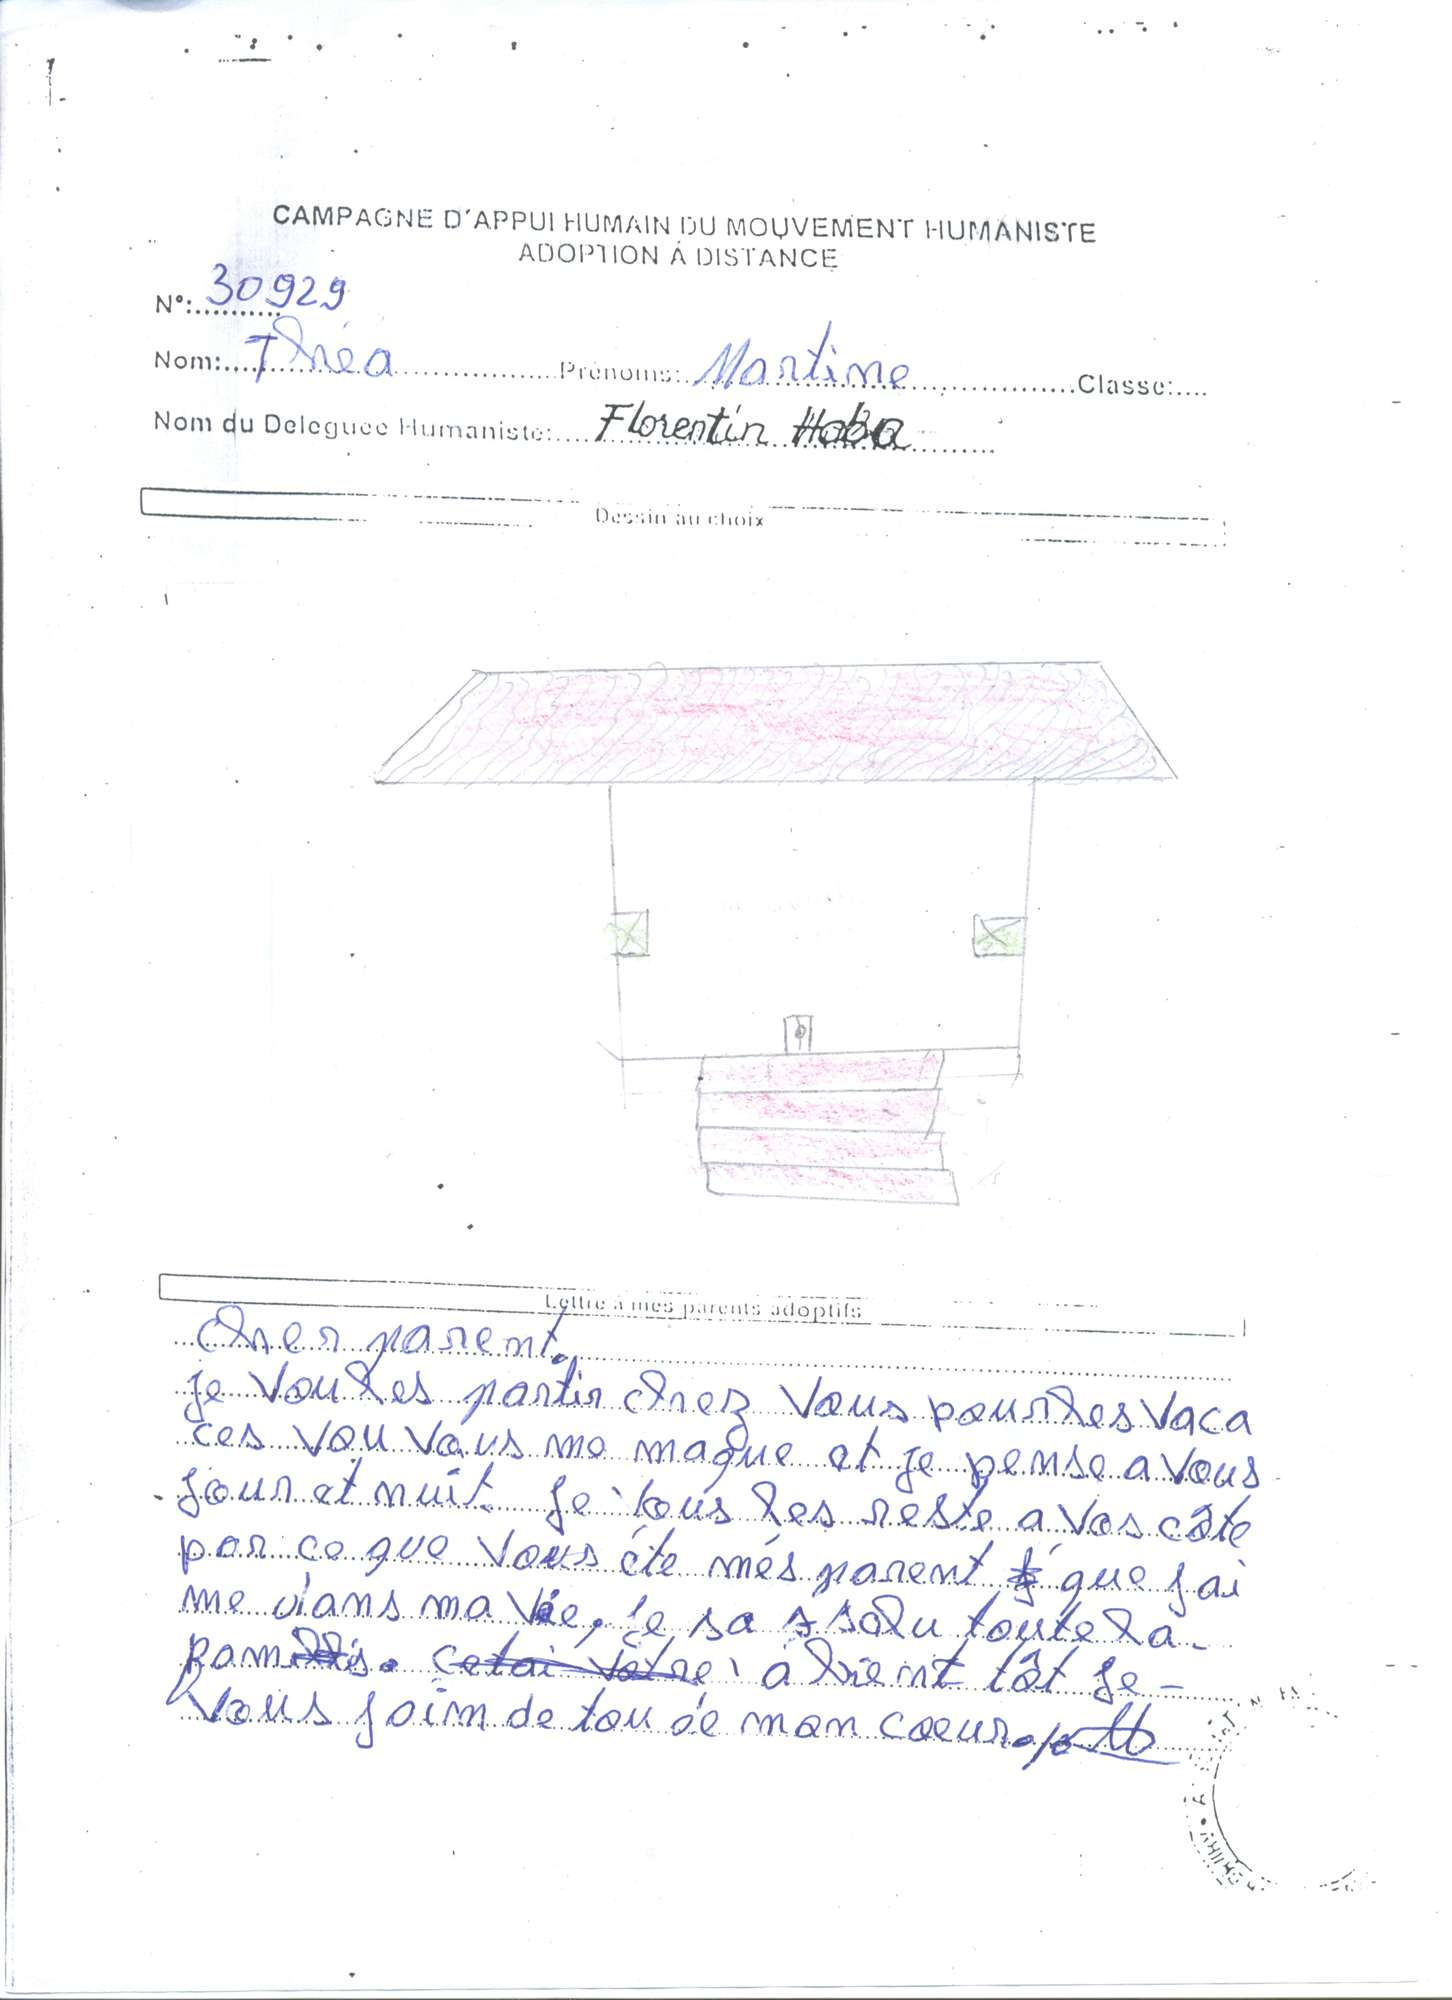 CAMPAGNE D'APPUI HUMAIN DU MOUVEMENT HUMANISTE
ADOPTION À DISTANCE
N°: 30929
Nom: Théa Prénoms: Martine Classe:
Nom du Deleguee Humaniste: Florentin Haba
Dessin au choix
Lettre à mes parents adoptifs
cher parent.
je voules partir chez vous pour les vaca
ces vou vous me maque et je pense a vous
jour et nuit. je vous les reste a vos côte
par ce que vous éte més parent que j'ai
me dans ma vie, je sa solu toute la
à bient tôt je
vous joim de tou de mon coeur.